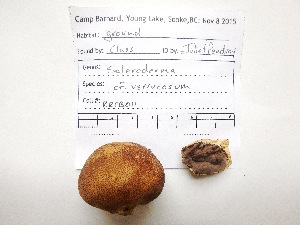 Camp Barnard, Young Lake, Sooke, BC: Nov 8 2015
Habitat: ground
Found by: Class ID by:
Genus: Scleroderma
Species: cf. verrucosum
Coll#: